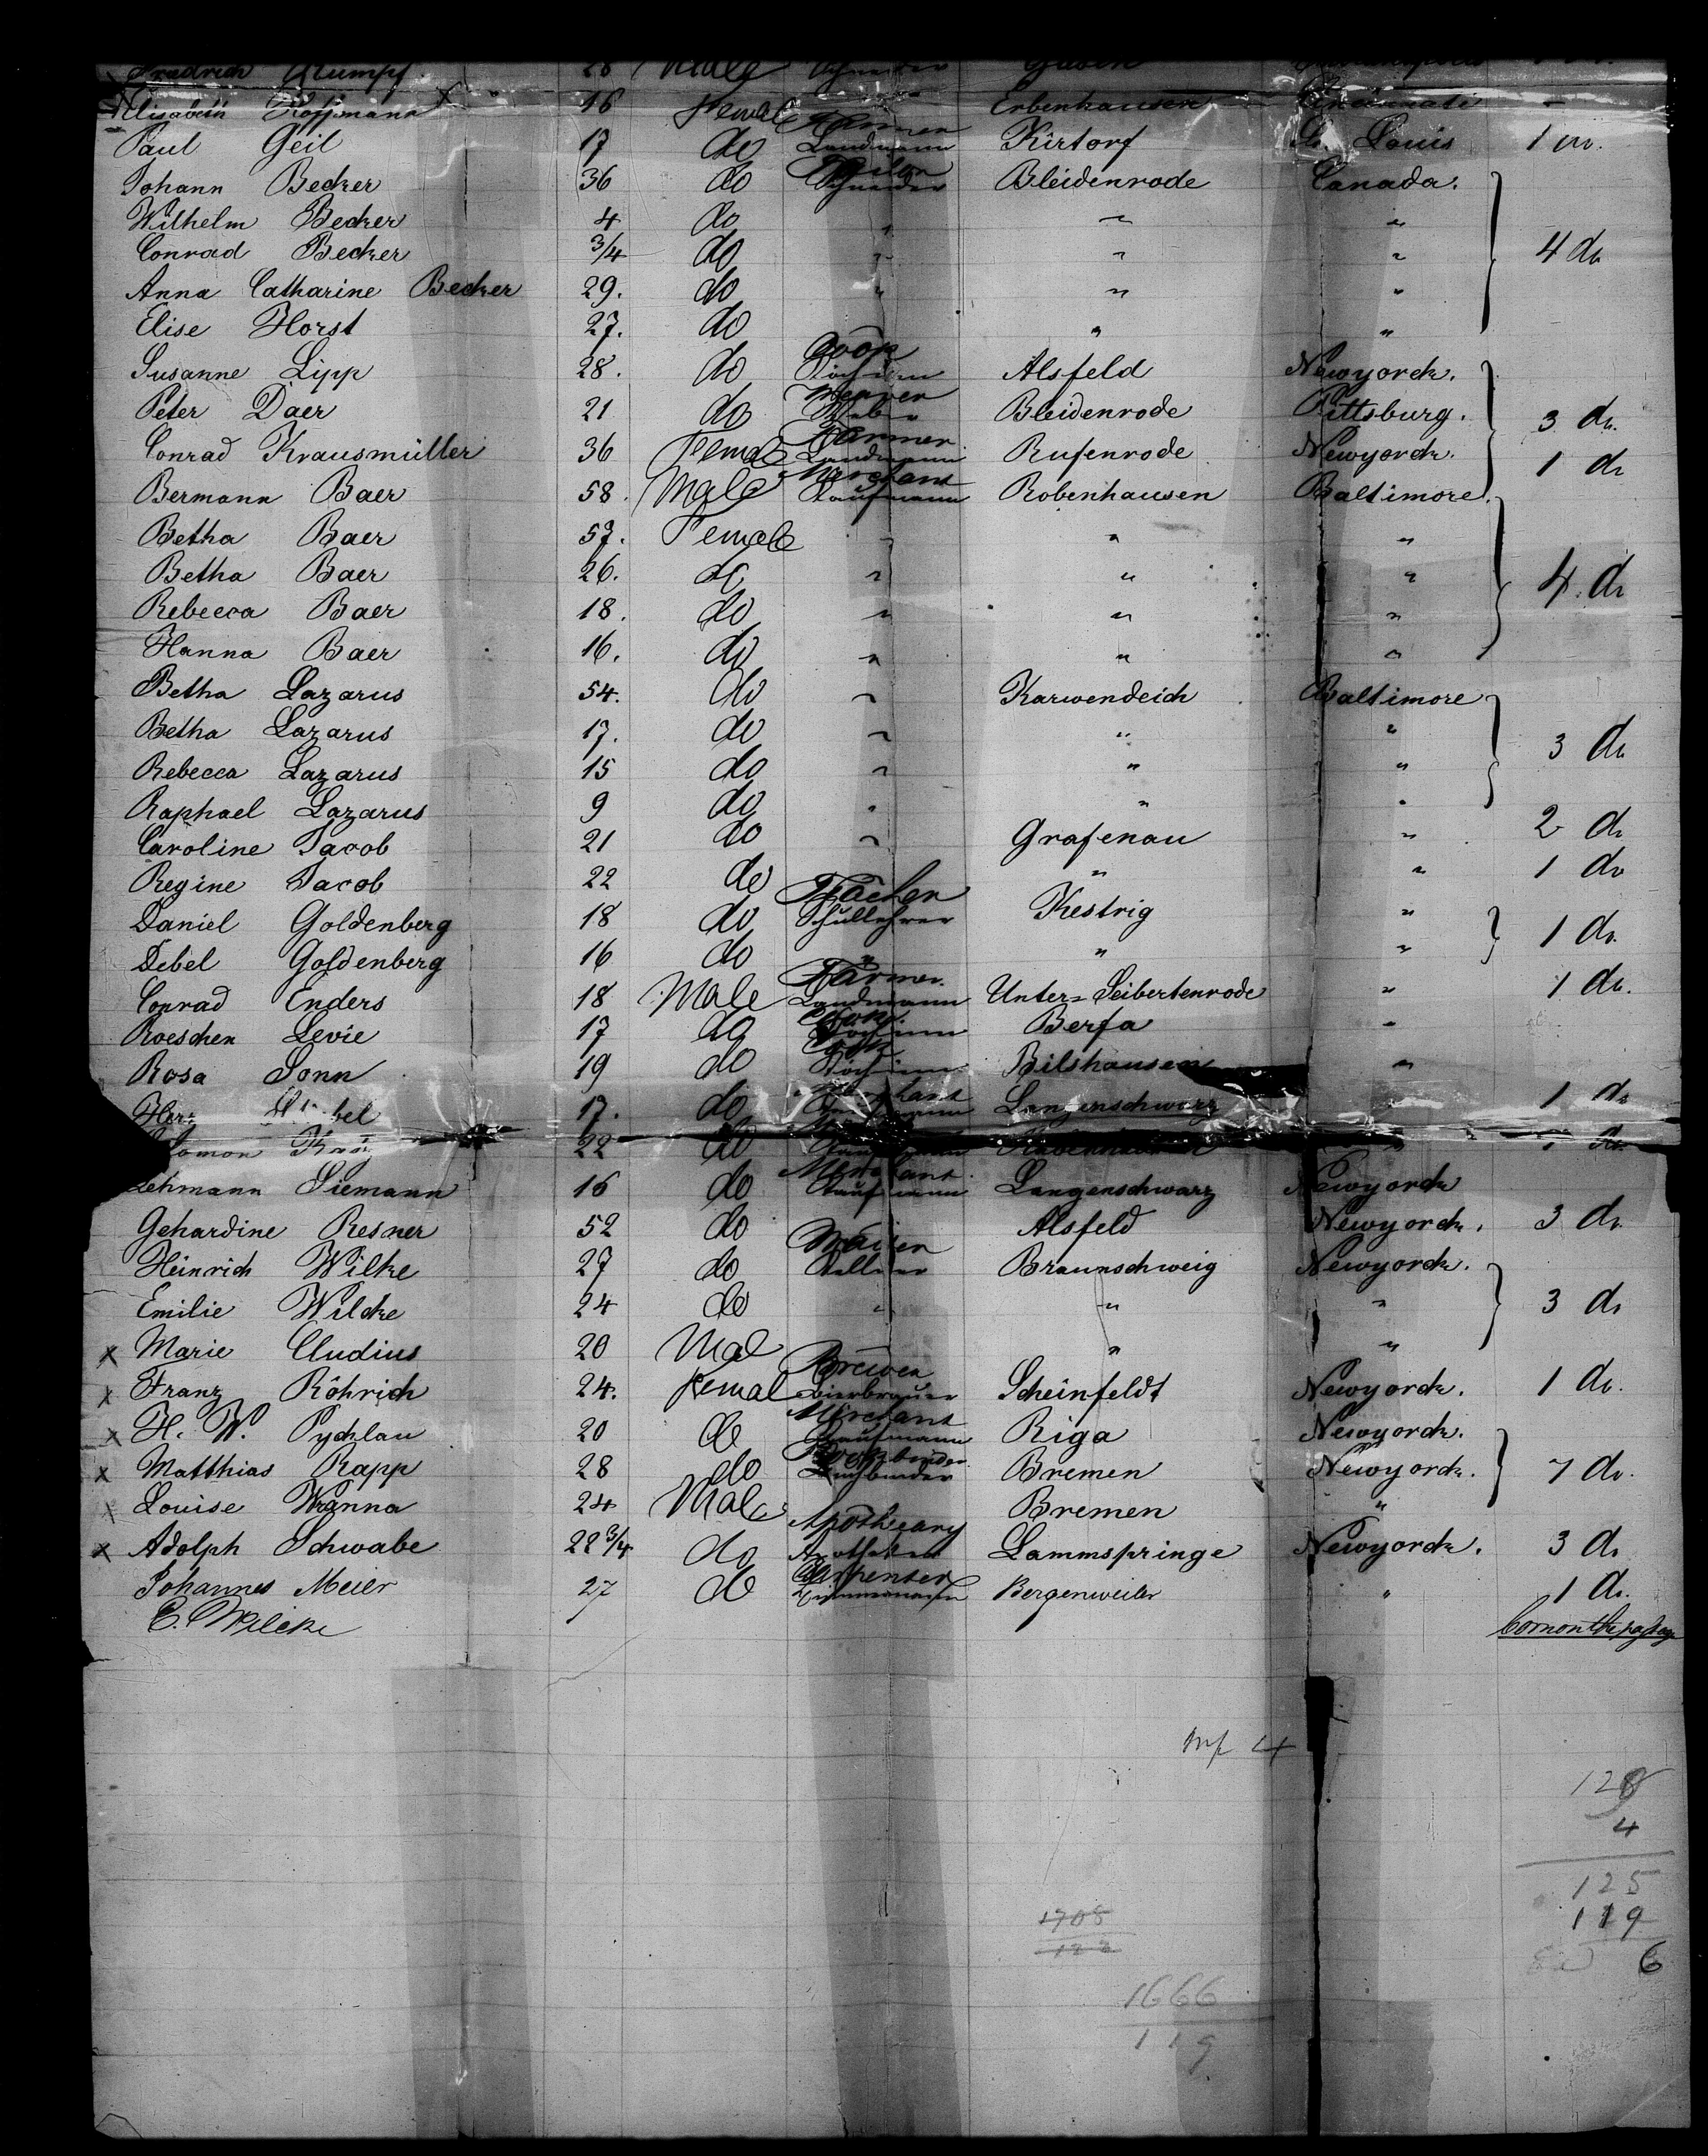 Friedrich Rumpf 28 Male Schneider
Elisabeth Hoffmann 16 Female Erbenhausen Cincinnati "
Paul Geil 17 do Farmer Landmann Kirtorf St. Louis 1 do.
Johann Becker 36 do Schneider Bleidenrode Canada.
Wilhelm Becker 4 do " " "
Conrad Becker 3/4 do " " " 4 do
Anna Catharine Becker 29. do " " "
Elise Horst 27. do " "
Susanne Lipp 28. do Cook Köchinn Alsfeld Newyork.
Peter Daer 21 do Weaver Weber Bleidenrode Pittsburg. 3 do.
Conrad Krausmüller 36 Female Farmer Landmann Rufenrode Newyork. 1 do
Bermann Baer 58. Male Merchant Kaufmann Robenhausen Baltimore.
Betha Baer 57. Female " " "
Betha Baer 26. do " " " 4. do
Rebecca Baer 18. do " " "
Hanna Baer 16. do " " "
Betha Lazarus 54. do " Karwendeich Baltimore
Betha Lazarus 17. do " " " 3 do
Rebecca Lazarus 15 do " " "
Raphael Lazarus 9 do " " "
Caroline Jacob 21 do " Grafenau " 2 do
Regine Jacob 22 do " " 1 do
Daniel Goldenberg 18 do Teacher Schullehrer Kestrig " 1 do.
Debel Goldenberg 16 do " " "
Conrad Enders 18 Male Farmer. Landmann Unter=Seibertenrode " 1 do.
Roeschen Levie 17 do Cook. Köchinn Berfa "
Rosa Sonn 19 do Cook Köchinn Bilshausen "
Herz 17. do Langenschwarz 1 do
22 do " do
Lehmann Siemann 16 do Merchant Kaufmann Langenschwarz Newyork
Gehardine Resner 52 do Alsfeld Newyork. 3 do.
Heinrich Wilke 27 do Waiter Kellner Braunschweig Newyork.
Emilie Wilcke 24 do " " " 3 do
x Marie Cludius 20 Mal " "
x Franz Röhrich 24. Femal Brewer Bierbrauer Scheinfeldt Newyork. 1 do.
x H. W. Pychlau 20 do Merchant Kaufmann Riga Newyork.
x Matthias Rapp 28 do Bookbinder Buchbinder Bremen Newyork. 7 do.
x Louise Wranna 24 Male Bremen "
x Adolph Schwabe 22 3/4 do Apothecary Apotheker Lammspringe Newyork. 3 do
Johannes Meier 27 do Carpenter Zimmermann Bergenweiler " 1 do.
E. Wilcke
4
128
4
125
119
6
1705
122
1666
119